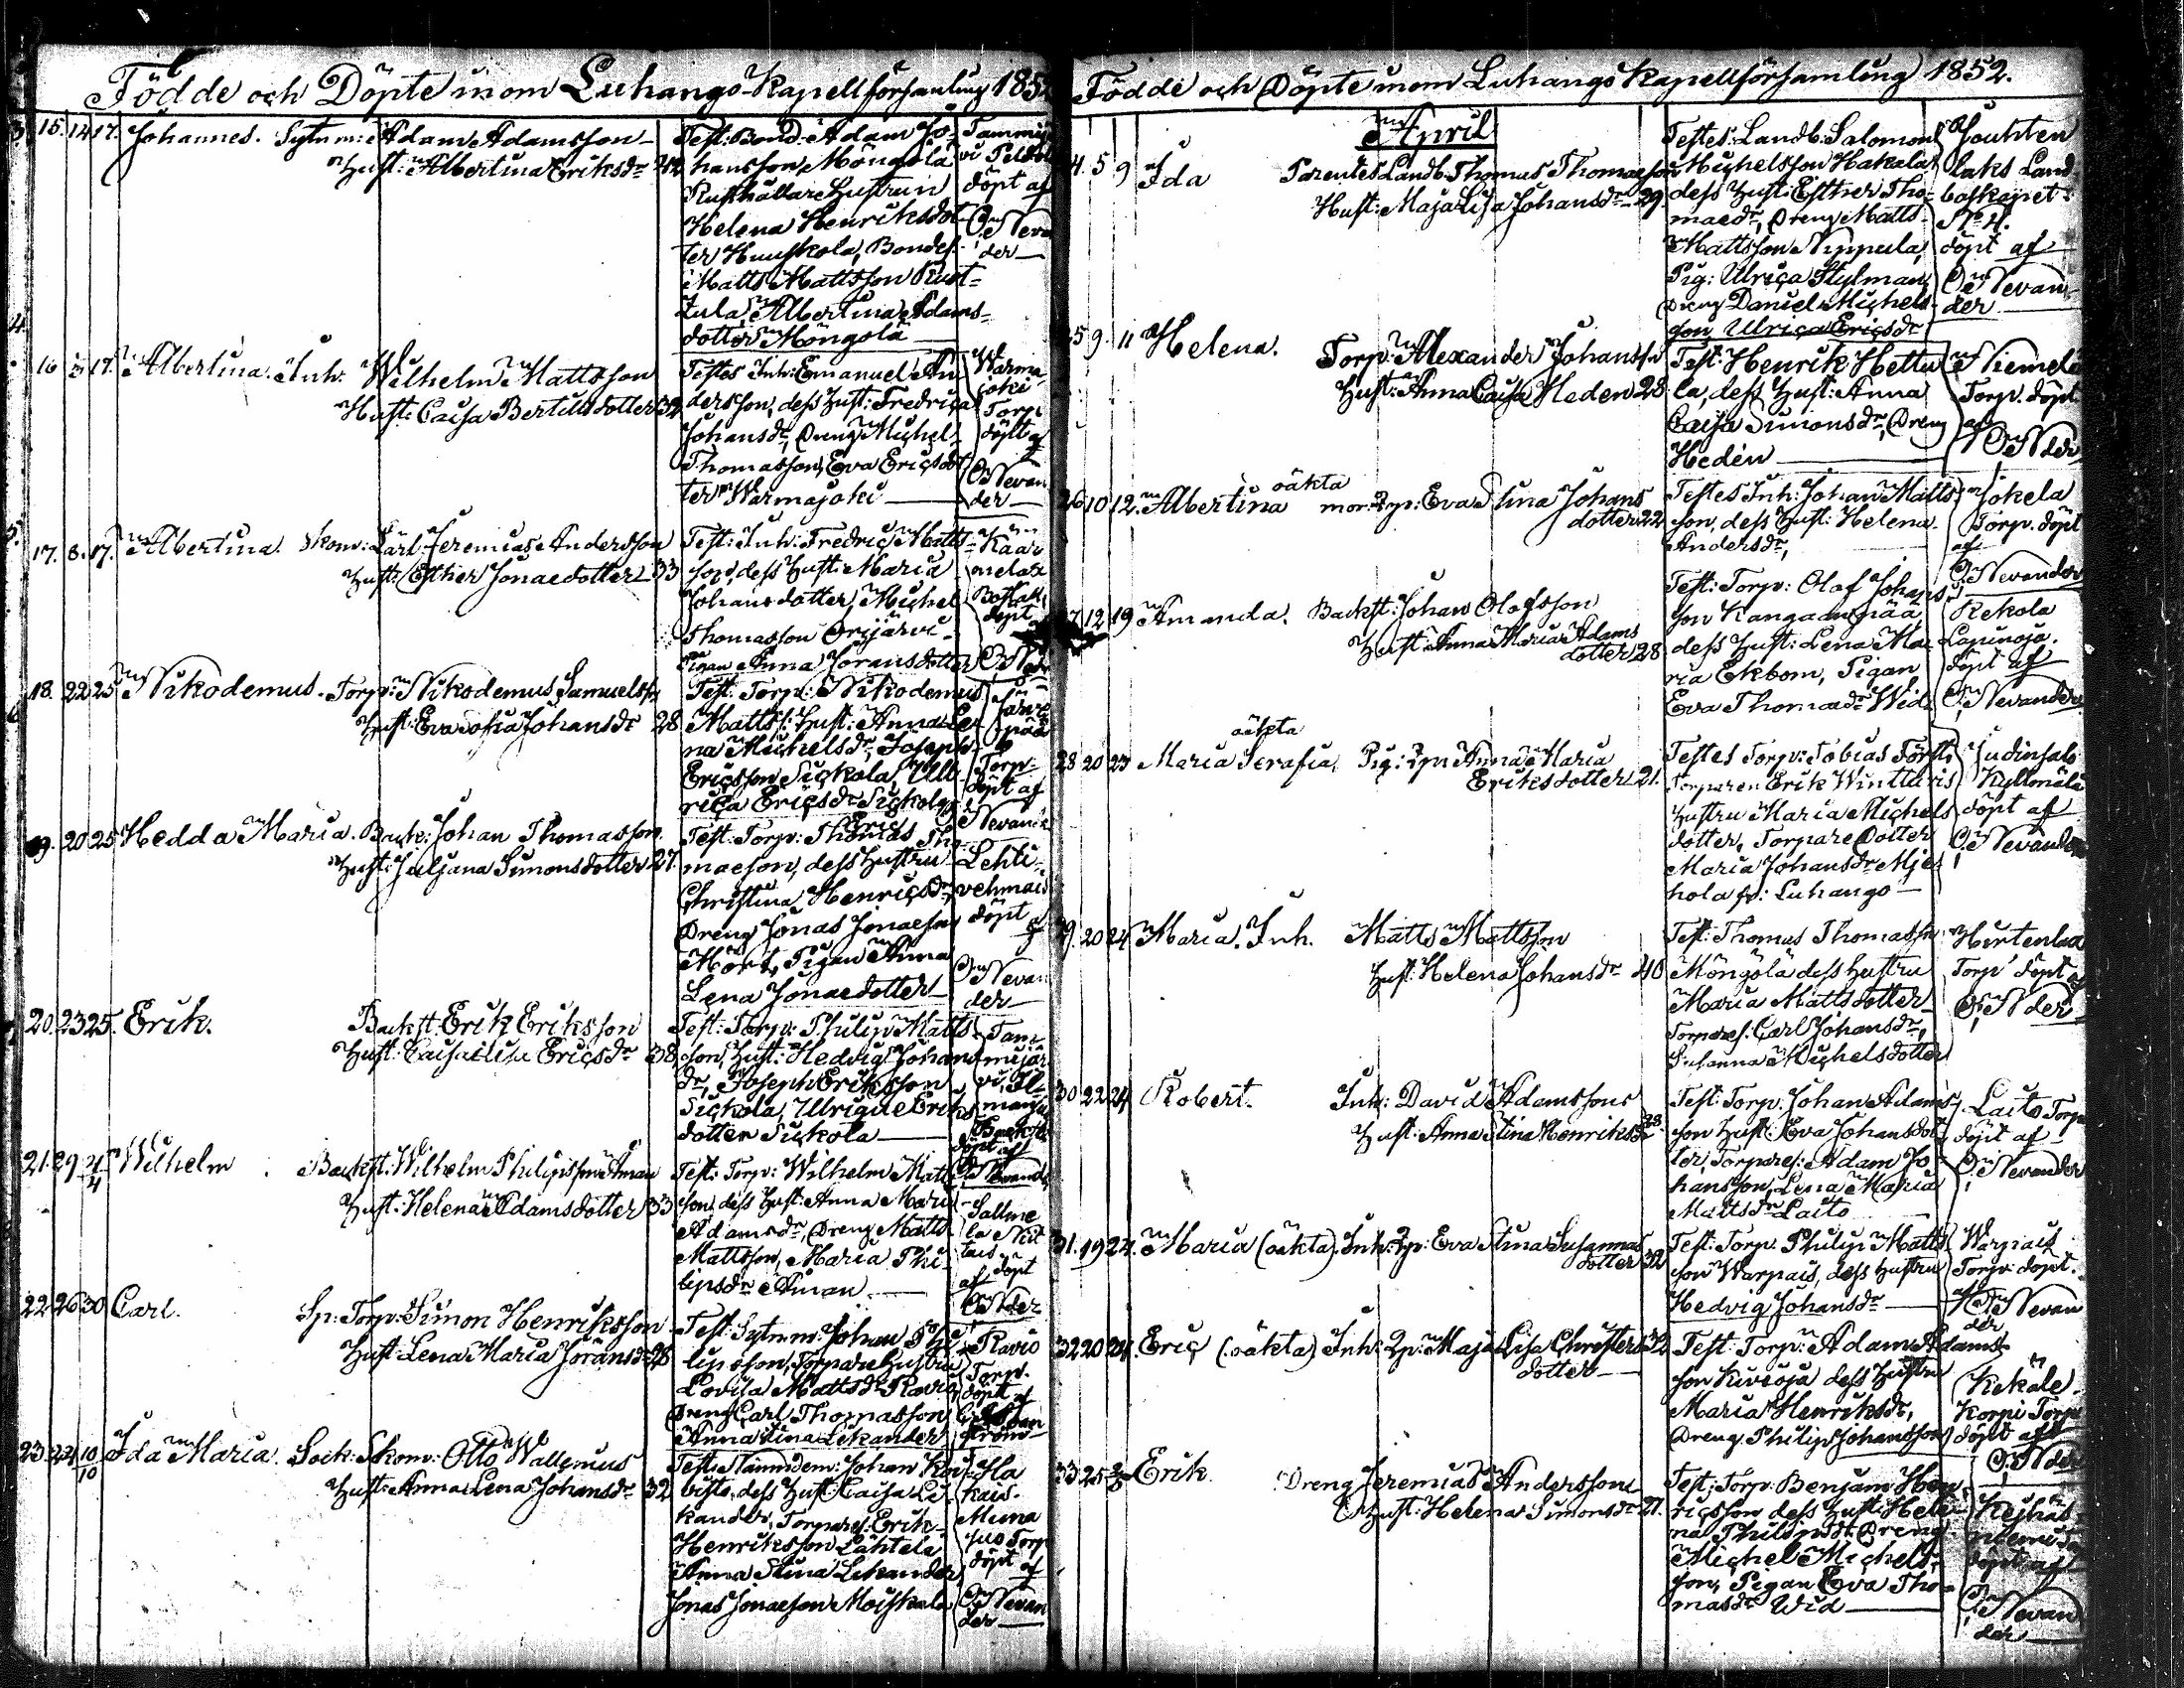 Födde och Döpte inom Luhango Kapellförsamling 185
15. 14 17. Johannes. Sytnm: Adam Adamsson
Hust: Albertina Eriksdr 42
Test: Bond: Adam Jo-
hansson Möngölä
Rusthållare Hustrun
Helena Henriksdot-
ter Huuskola, Bondes:
Matts Mattsson Rust-
Albertina Adams-
dotter Möngölä
döpt af
O: Nevan
der
16 17. Albertina. Inh: Wilhelm Mattsson
Hust: Caisa Bertilsdotter 32
Testes Inh: Emanuel An
dersson, dess Hust: Fredrica
Johansdr, Dreng Michel
Thomasson, Eva Ericsdot
ter Warmajoki
Warma
joki
Torp
döpt af
O: Nevan
der
17. 8. 17. Albertina. Skom: Karl Jeremias Andersson
Hust: Esther Jonaedotter 33
Test: Inh: Fredric Matts-
son, dess Hust: Maria
Johansdotter, Michel
Thomasson Orijärvi
Pigan Anna Joransdotter
döpt
18. 22 25 Nikodemus. Torp: Nikodemus Samuelsson
Hust: Eva Sofia Johansdr 28
Test: Torp: Nikodemus
Matts: Hust: Anna Le-
na Michelsdr, Joseph
Ericsson Sickola, Ull-
rica Ericsdr Sickola
Järvi
pää
Torp-
döpt af
O: Nevand
19. 20 25 Hedda Maria. Back: Johan Thomasson.
Hust: Juljana Simonsdotter 27.
Test: Torp: Thomas Tho-
maeson, dess Hustru
Christina Henricsdr,
Dreng Jonas Jonaeson
Mört, Pigan Anna
Lena Jonaedotter
Lehti-
vehmais
döpt af
O: Nevan
der
20. 23 25. Erik. Backst: Erik Eriksson
Hust: Caisa Lisa Ericsdr 38
Test: Torp: Philip Matts
son, Hust: Hedvig Johans
dr, Joseph Eriksson
Sickola, Ulrique Eriks
dotter Sickola
döpt af
21. 29 4/4 Wilhelm. Backst: Wilhelm Philipsson Åman
Hust: Helena Adamsdotter 33
Test: Torp: Wilhelm Matts
son, dess Hust: Anna Maria
Adamsdr, Dreng Matts
Mattsson, Maria Phi-
lipsdr Åman
Sallme
la
döpt
af
O: Nder
22. 26 30 Carl. Sp: Torp: Simon Henriksson
Hust: Lena Maria Joransdr 28
Test: Sytnm: Johan Phi
lipsson, Torpare Hustru
Lovisa Mattsdr Ravio
Dreng Carl Thomasson
Anna Stina Lekander
Ravio
Torp.
döpt af
23. 24 10/10 Ida Maria. Sock: Skom: Otto Wallenius
Hust: Anna Lena Johansdr 32
Test: Nämndem: Johan
dess Hust: Caisa Le-
kander, Torpares: Erik
Henriksson Lahtela
Anna Stina Lekander
Jonas Jonaeson Moiskala
Ha
kais-
Muna
suo Torp
döpt af
O: Nevan
der
Födde och Döpte inom Luhango Kapellförsamling 1852.
April
24. 5 9 Ida Parentes Landb. Thomas Thomaeson
Hust: Maja Lisa Johansdr 29
Testes: Landb: Salomon
Michelsson Hakala
dess Hust: Esther Tho-
maedr, Dreng Matts
Mattsson Nippula,
Pig: Ulrica Hylman
Dreng Daniel Michels-
son Ulrica Ericsdr
Jouhten
laks Land
boskapet
No 4.
döpt af
O: Nevan-
der
25 9 11 Helena. Torp: Alexander Johansson
Hust: Anna Caisa Heden 28
Test: Henrik Hettu
la, dess Hust: Anna
Caisa Simonsdr, Dreng
Hedén
Niemelä
Torp. döpt
af
O: Nder
26 10 12. Albertina oäkta mor: Eva Stina Johans
dotter 22
Testes Inh: Johan Matts
son, dess Hust: Helena
Andersdr,
Jokela
Torp. döpt
af
O: Nevander
27 12 19 Amanda. Backst: Johan Olofsson
Hust: Anna Maria Adams
dotter 28
Test: Torp: Olof Johans
son Kangaanpää
dess Hust: Lena Ma-
ria Ekbom, Pigan
Eva Thomaedr Wid
Rekola
Lapinoja.
döpt af
O: Nevander
28 20 23 Maria Serafia, oäkta Pig: Anna Maria
Eriksdotter 21.
Testes Torp: Tobias Törst
Torparen Erik Winttaris
Hustru Maria Michels
dotter, Torpare Dotter
Maria Johansdr
Luhango
Judinsalo
döpt af
O: Nevander
29. 20 24 Maria. Inh. Matts Mattsson
Hust: Helena Johansdr 40
Test: Thomas Thomasson
Möngölä dess Hustru
Maria Mattsdotter
Torpares: Carl Johansdr,
Susanna Michelsdotter
Torp döpt af
O: Nder
30 22 24 Robert. Inh: David Adamsson
Hust: Anna Stina Henriksdr 28
Test: Torp: Johan Adams
son Hust: Eva Johansdot
ter, Torpares: Adam Jo-
hansson, Lena Maria
Mattsdr Laito
Laito Torp
döpt af
O: Nevander
31. 19 24. Maria (oäkta). Inh: Eva Stina Susannas
dotter 32
Test: Torp: Philip Matts
son Warpais, dess Hustru
Hedvig Johansdr
Warpais
Torp: döpt.
af O: Nevan
der
32 20 24. Eric (oäkta) Inh: Maja Lisa Christers 32
dotter
Test: Torp: Adam Adams-
son Kivioja dess Hustru
Maria Henriksdr,
Dreng Philip Johansson
Kekäle
korpi Torp
döpt af
O: Nder
33 25 Erik. Dreng Jeremias Andersson
Hust: Helena Simonsdr 27.
Test: Torp: Benjam Hen
ricsson dess Hust: Hele
na Philipsdr, Dreng
Michel Michels-
son, Pigan Eva Tho-
masdr Wid
döpt af
O: Nevan
der